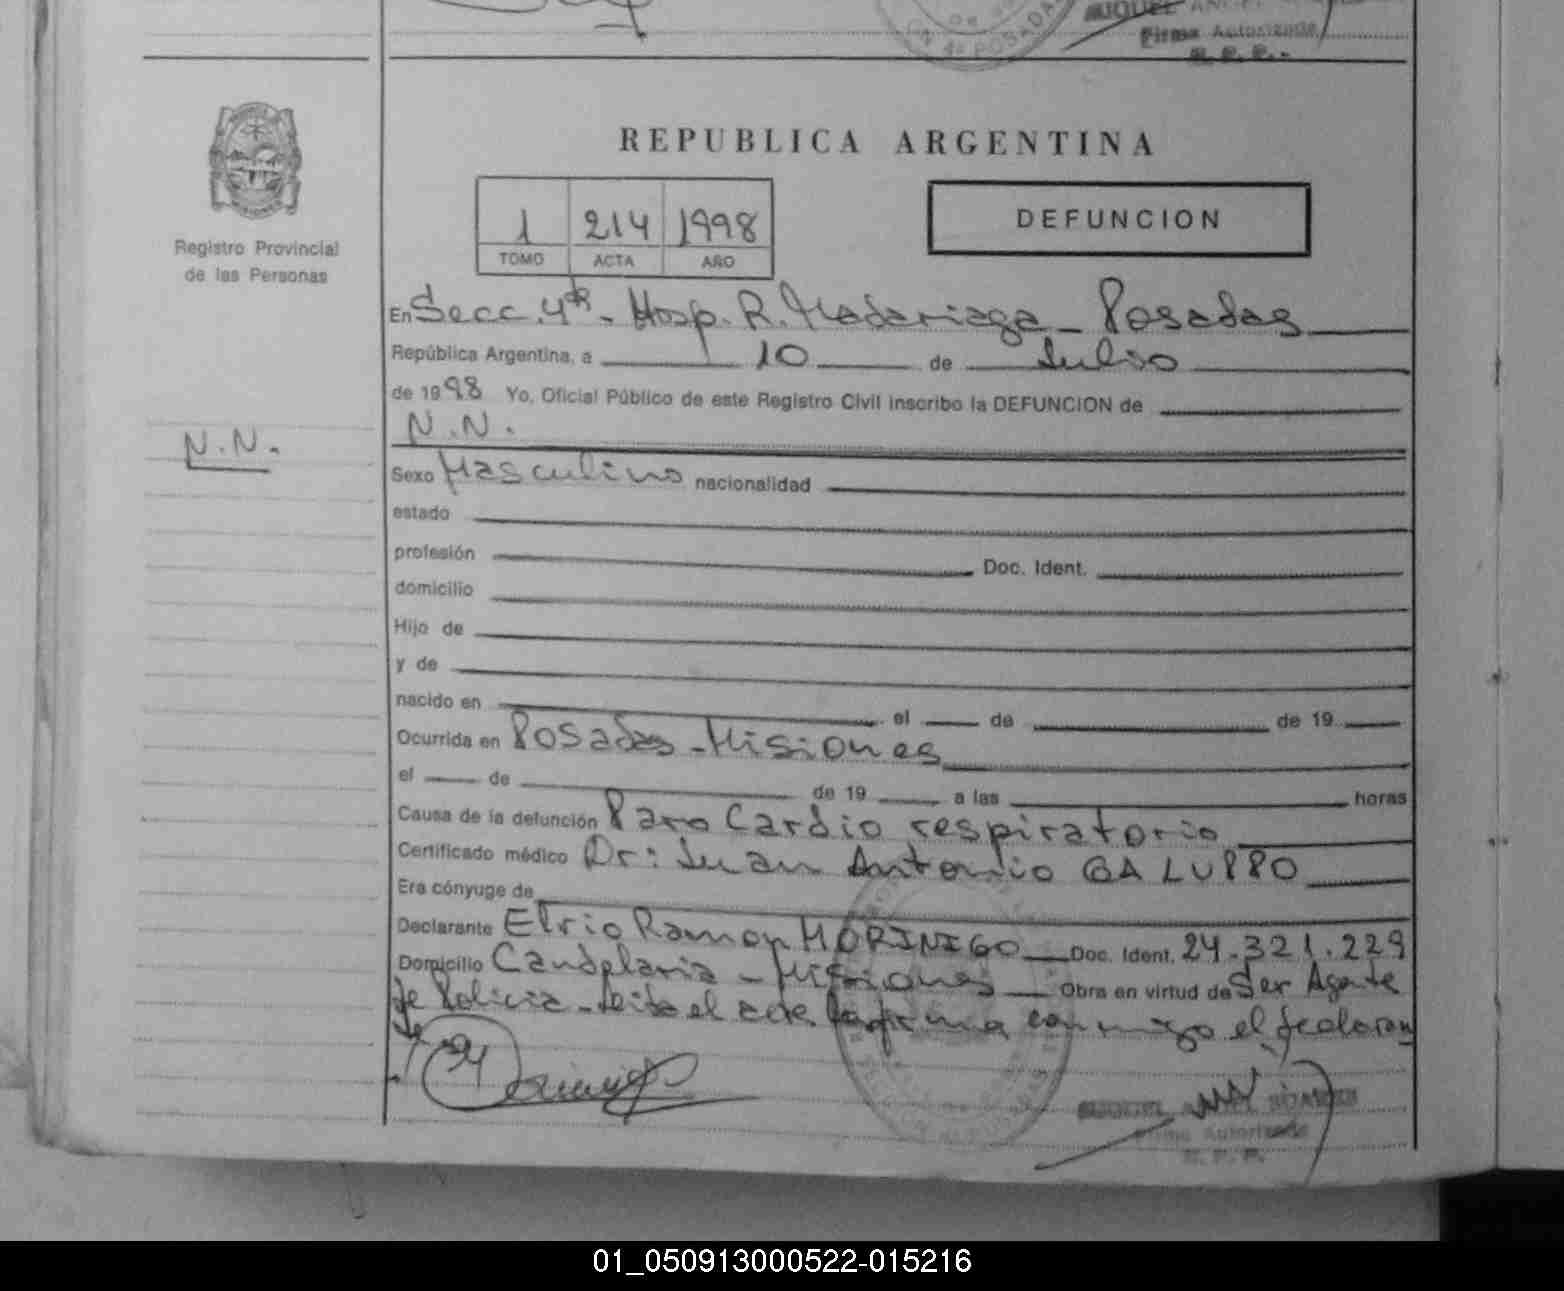 Firma Autorizada
R. P. P.
REPUBLICA ARGENTINA
1 214 1998
TOMO ACTA AÑO
DEFUNCION
Registro Provincial
de las Personas
En Secc. 4ta - Hosp. R. Madariaga - Posadas
República Argentina, a 10 de Julio
de 1998 Yo, Oficial Público de este Registro Civil inscribo la DEFUNCION de
N.N.
N.N.
Sexo Masculino nacionalidad
estado
profesión Doc. Ident.
domicilio
Hijo de
y de
nacido en el de de 19
Ocurrida en Posadas - Misiones
el de de 19 a las horas
Causa de la defunción Paro Cardio respiratorio
Certificado médico Dr: Juan Antonio GALUPPO
Era cónyuge de
Declarante Elvio Ramon MORINIGO Doc. Ident. 24.321.229
Domicilio Candelaria - Misiones Obra en virtud de Ser Agente
de Policia - Leida el acta la firma conmigo el declaran
te
MIGUEL ANGEL
Firma Autorizada
R. P. P.
01_050913000522-015216